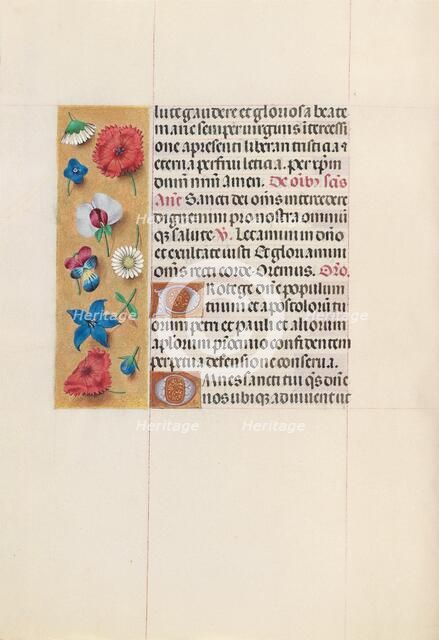 lute gaudere et gloriosa beate
marie semper virginis intercessi
one a presenti liberari tristicia et
eterna perfrui leticia. per xpm
dnm nrm amen. De oibus scis
Ane Sancti dei omnes intercedere
dignemini pro nostra omniu
qz salute V. Letamini in dno
et exultate iusti Et gloriamini
omnes recti corde Oremus. Oro.
Protege dne populum
tuum et apostolorum tu
orum petri et pauli et aliorum
aplorum procinio confidentem
perpetua defensione conserua.
Omnes sancti tui qs dne
nos ubiqz adiuuent ut
Heritage
Heritage
Heritage
Heritage
Heritage
Heritage